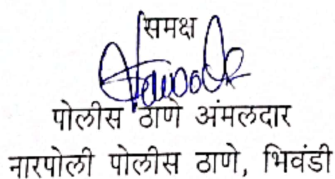 समक्ष
पोलीस ठाणे अंमलदार
नारपोली पोलीस ठाणे, भिवंडी